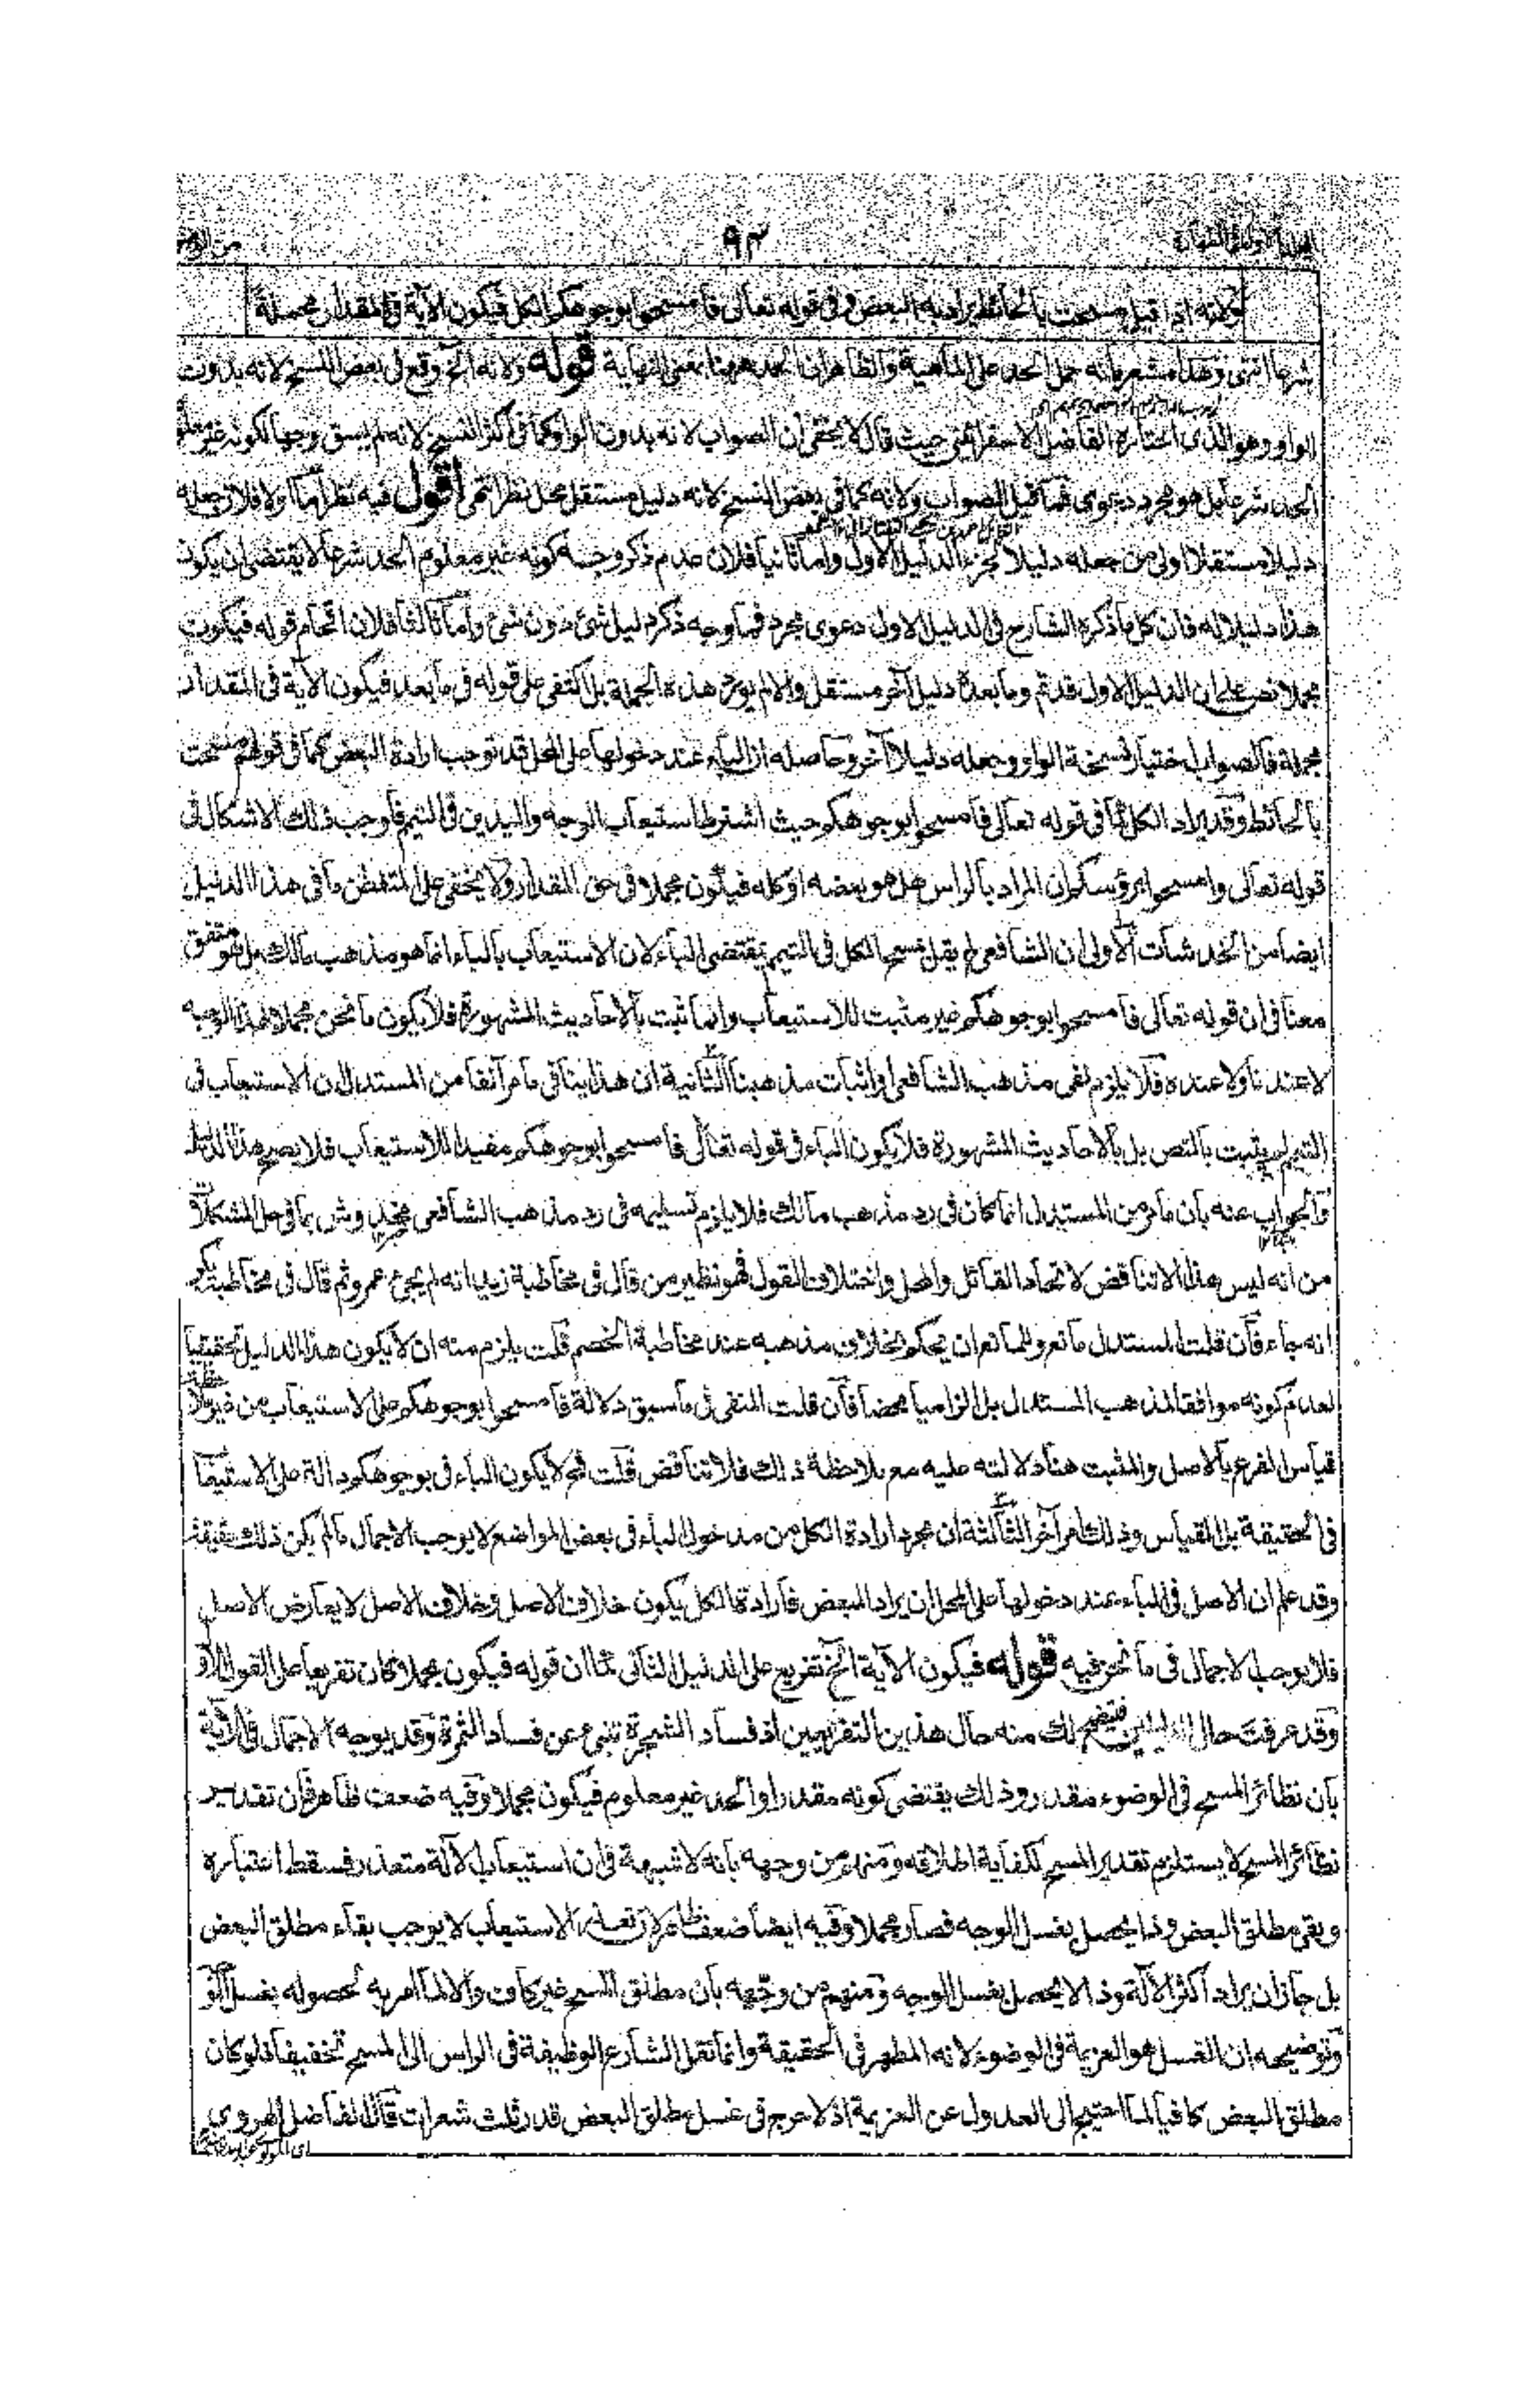 ٩٣
ولانه اذا قيل مسحت بالحائط يراد به البعض وفى قوله تعالى فامسحوا بوجوهكم الكل فيكون الآية فى المقدار مجملة
شرعا انتهى وهذا مشعر بانه حمل الحد على الماهية والظاهر ان الحد ههنا بمعنى النهاية قوله ولانه الخ وقع فى بعض النسخ لانه بدون
الواو وهو الذى اختاره الفاضل الاسفرائنى حيث قال لا يخفى ان الصواب لانه بدون الواو كما فى اكثر النسخ لانه لم يسبق وجها لكونه غير معلوم
الحد شرعا بل هو مجرد دعوى فما قيل الصواب ولانه كما فى بعض النسخ لانه دليل مستقل محل نظر انتهى اقول فيه نظر اما اولا فلان جعله
دليلا مستقلا اولى من جعله دليلا لجزء الدليل الاول واما ثانيا فلان عدم ذكر وجه كونه غير معلوم الحد شرعا لا يقتضى ان يكون
هذا دليلا له فان كل ما ذكره الشارح فى الدليل الاول دعوى مجرد فما وجه ذكر دليل شئ دون شئ واما ثالثا فلان اقحام قوله فيكون
مجملا نص على ان الدليل الاول قد تم وما بعده دليل آخر مستقل والا لم يورد هذه الجملة بل اكتفى على قوله فى ما بعد فيكون الآية فى المقدار
مجملة فالصواب اختيار نسخة الواو وجعله دليلا آخر وحاصله ان الباء عند دخولها على المحل قد توجب ارادة البعض كما فى قولهم مسحت
بالحائط وقد يراد الكل كما فى قوله تعالى فامسحوا بوجوهكم حيث اشترط استيعاب الوجه واليدين فى التيمم فاوجب ذلك الاشكال فى
قوله تعالى وامسحوا برؤسكم ان المراد بالراس هل هو بعضه او كله فيكون مجملا فى حق المقدار ولا يخفى على المتفطن ما فى هذا الدليل
ايضا من الخدشات الاولى ان الشافعى لم يقل مسح الكل فى التيمم بمقتضى الباء لان الاستيعاب بالباء انما هو مذهب مالك بل هو متفق
معنا فى ان قوله تعالى فامسحوا بوجوهكم غير مثبت للاستيعاب وانما ثبت بالاحاديث المشهورة فلا يكون ما نحن مجملا لهذا الوجه
لا عندنا ولا عنده فلا يلزم نفى مذهب الشافعى واثبات مذهبنا الثانية ان هذا ينافى ما مر آنفا من المستدل ان الاستيعاب فى
التيمم لم يثبت بالنص بل بالاحاديث المشهورة فلا يكون الباء فى قوله تعالى فامسحوا بوجوهكم مفيدا للاستيعاب فلا يصح هذا الدليل
والجواب عنه بان ما مر من المستدل انما كان فى رد مذهب مالك فلا يلزم تسليمه فى رد مذهب الشافعى مخدوش بما فى حل المشكلات
من انه ليس هذا الا تناقض لاتحاد القائل والمحل واختلاف القول فهو نظير من قال فى مخاطبة زيد انه لم يجئ عمرو ثم قال فى مخاطبة بكر
انه جاء فان قلت المستدل مانع وللمانع ان يحكم بخلاف مذهبه عند مخاطبة الخصم قلت يلزم منه ان لا يكون هذا الدليل تحقيقيا
لعدم كونه موافقا لمذهب المستدل بل الزاميا محضا فان قلت المنفى فى ما سبق دلالة فامسحوا بوجوهكم على الاستيعاب من غير ملاحظة
قياس الفرع بالاصل والمثبت هنا دلالته عليه مع ملاحظة ذلك فلا تناقض قلت فح لا يكون الباء فى بوجوهكم دالة على الاستيعاب
فى الحقيقة بل القياس وذلك امر آخر الثالثة ان مجرد ارادة الكل من مدخول الباء فى بعض المواضع لا يوجب الاجمال ما لم يكن ذلك حقيقة
وقد علم ان الاصل فى الباء عند دخولها على المحل ان يراد البعض فارادة الكل يكون خلاف الاصل وخلاف الاصل لا يعارض الاصل
فلا يوجب الاجمال فى ما نحن فيه قوله فيكون الآية الخ تفريع على الدليل الثانى كما ان قوله فيكون مجملا كان تفريعا على القول الاول
وقد عرفت حال الدليلين فيتضح لك منه حال هذين التفريعين اذ فساد الشجرة تنبئ عن فساد الثمرة وقد يوجه الاجمال فى الآية
بان نظائر المسح فى الوضوء مقدر وذلك يقتضى كونه مقدرا والحد غير معلوم فيكون مجملا وفيه ضعف ظاهر فان تقدير
نظائر المسح لا يستلزم تقدير المسح لكفاية اطلاقه ومنهم من وجهه بانه لا شبهة فى ان استيعاب الآلة متعذر فسقط اعتباره
وبقى مطلق البعض وذا يحصل بغسل الوجه فصار مجملا وفيه ايضا ضعف ظاهر لان تعذر الاستيعاب لا يوجب بقاء مطلق البعض
بل جاز ان يراد اكثر الآلة وذا لا يحصل بغسل الوجه ومنهم من وجهه بان مطلق المسح غير كاف والا لما امر به لحصوله بغسل الوجه
وتوضيحه ان الغسل هو العزيمة فى الوضوء لانه المطهر فى الحقيقة وانما نقل الشارع الوظيفة فى الراس الى المسح تخفيفا فلو كان
مطلق البعض كافيا لما احتيج الى العدول عن العزيمة اذ لا حرج فى غسل مطلق البعض قدر ثلث شعرات قال الفاضل الهروى